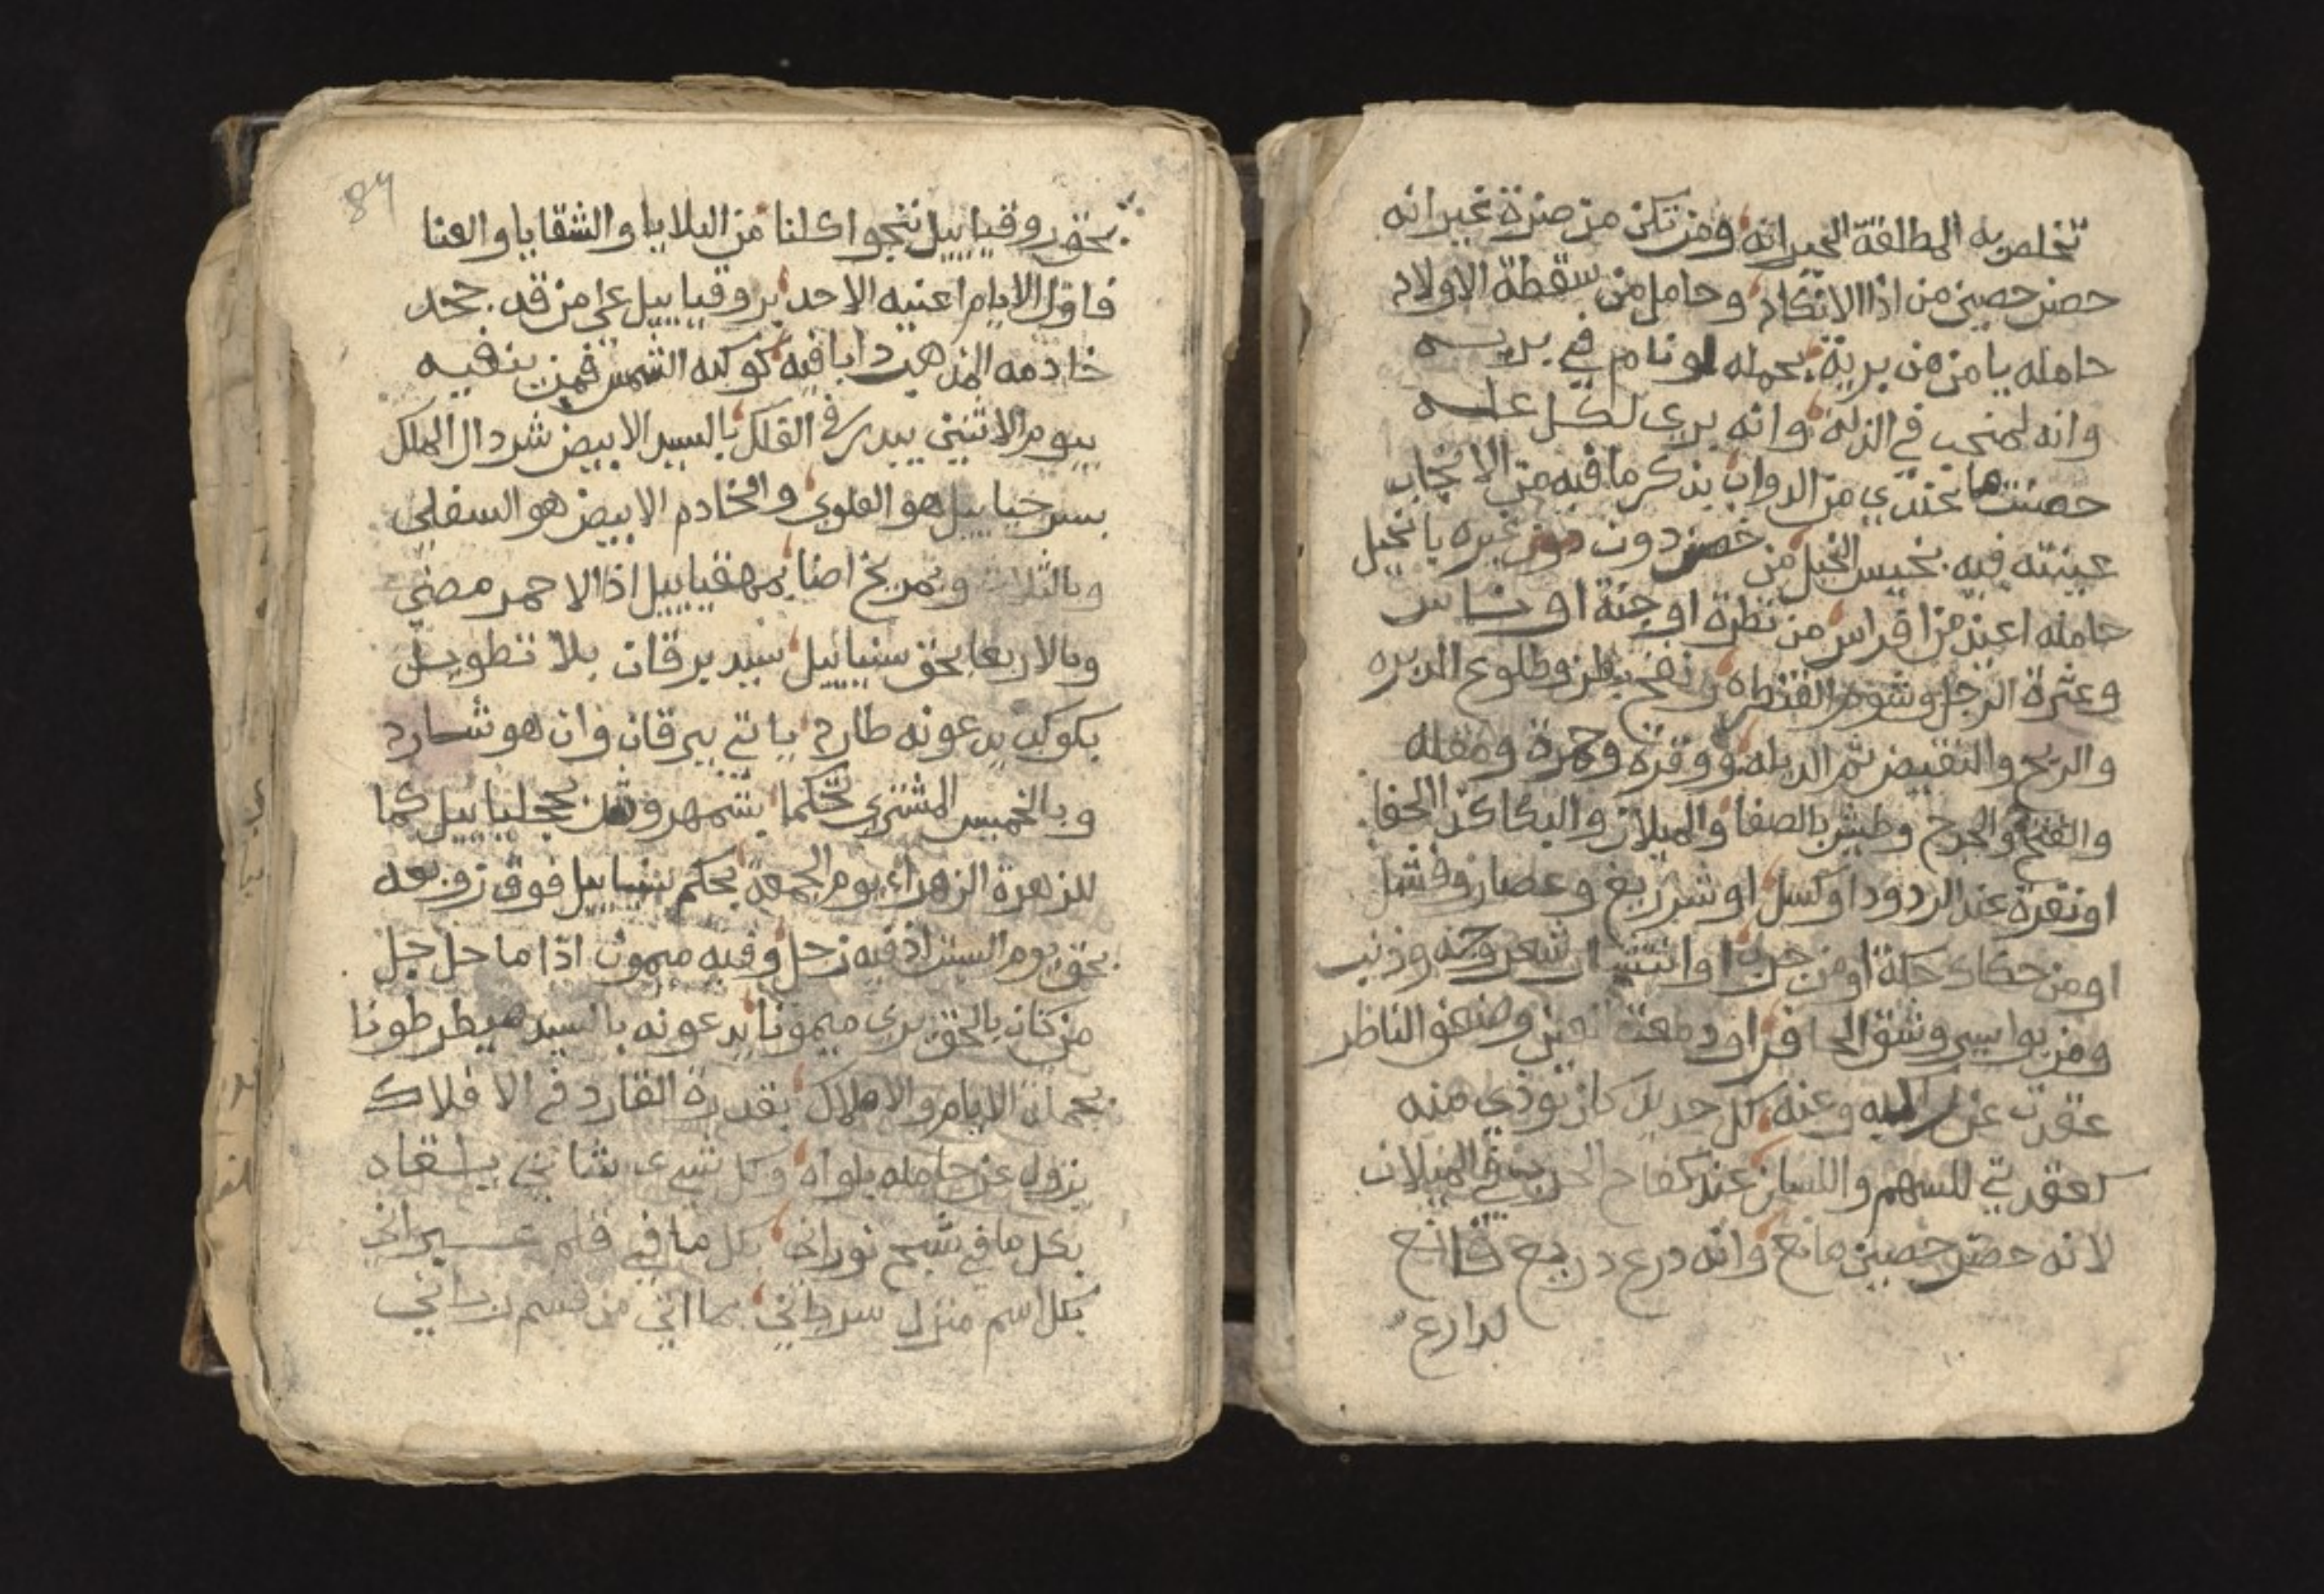 تخلص به المطلقة الحيرانه ومن تكن من ضرة غيرانه
حصن حصين من اذا الانكاد وحامل من سقطة الاولاد
حامله يا من من برية بحمله لو نام في بريه
وانه لمنجب في الذله وانه يرى لكل عله
حصنت ما عندي من الدواب بذكر ما فيه من الانجاب
عينته فيه بخيس الخيل من خصن دون غيره يا نخيل
حامله اعيذ من افراس من نظرة او جنة او ناس
وعثرة الرجل وشوم القنطره ونفخ بطن وطلوع الدبره
والريح والنقيض ثم الدبله ووقرة وجمرة ومغله
والفتح والجرح وطيش بالصفا والميلان والبكا كذا الحفا
او نقرة عند الردود او كسل او شر ريغ وعصار وفشل
او من حكاك حكة او من جرب او انتشار شعر وذنب
ومن بواسير وشق الحافر او دمعة العين وضعف الناظر
عقدت عن وعنه كل حديد كان توذي منه
كعقدتي للسهم واللسان عند كفاح الحرب في الميلان
لانه حصن حصين مانع وانه درع دريع
لدارع
84
بحق روقياييل ننجوا كلنا من البلايا والشقايا والعنا
فاول الايام اعنيه الاحد بروقياييل على من قد جحد
خادمه المذهب دابا فيه كوكبه الشمس فمن ينفيه
بيوم الاثنين يبدر في الفلك بالسيد الابيض شردال الملك
بسر جبياييل هو العلوي والخادم الابيض هو السفلي
وبالثلاث وبمريخ اضا بمهقياييل اذا الاحمر مضى
وبالاربعا بحق سنياييل سيد برقان بلا تطويل
بكوكب يدعونه طارد ياتي ببرقان وان هو شارد
وبالخميس المشتري تحكما بشمهروش بجلياييل كما
للزهرة الزهراء يوم الجمعة بحكم فوق زوبعه
بحق يوم السبت اذ فيه زحل وفيه ميمون اذا ما حل جل
من كان بالحق يرى ميمونا يدعونه بالسيد ميططرطونا
بجملة الايام والاملاك بقدرة القادر في الافلاك
يزول عن حامله بلواه وكل شيء شانئ يلقاه
بكل ما في شبح نوراني بكل ما في قلم عبراني
بكل اسم منزل سرياني بما اتى من قسم رباني